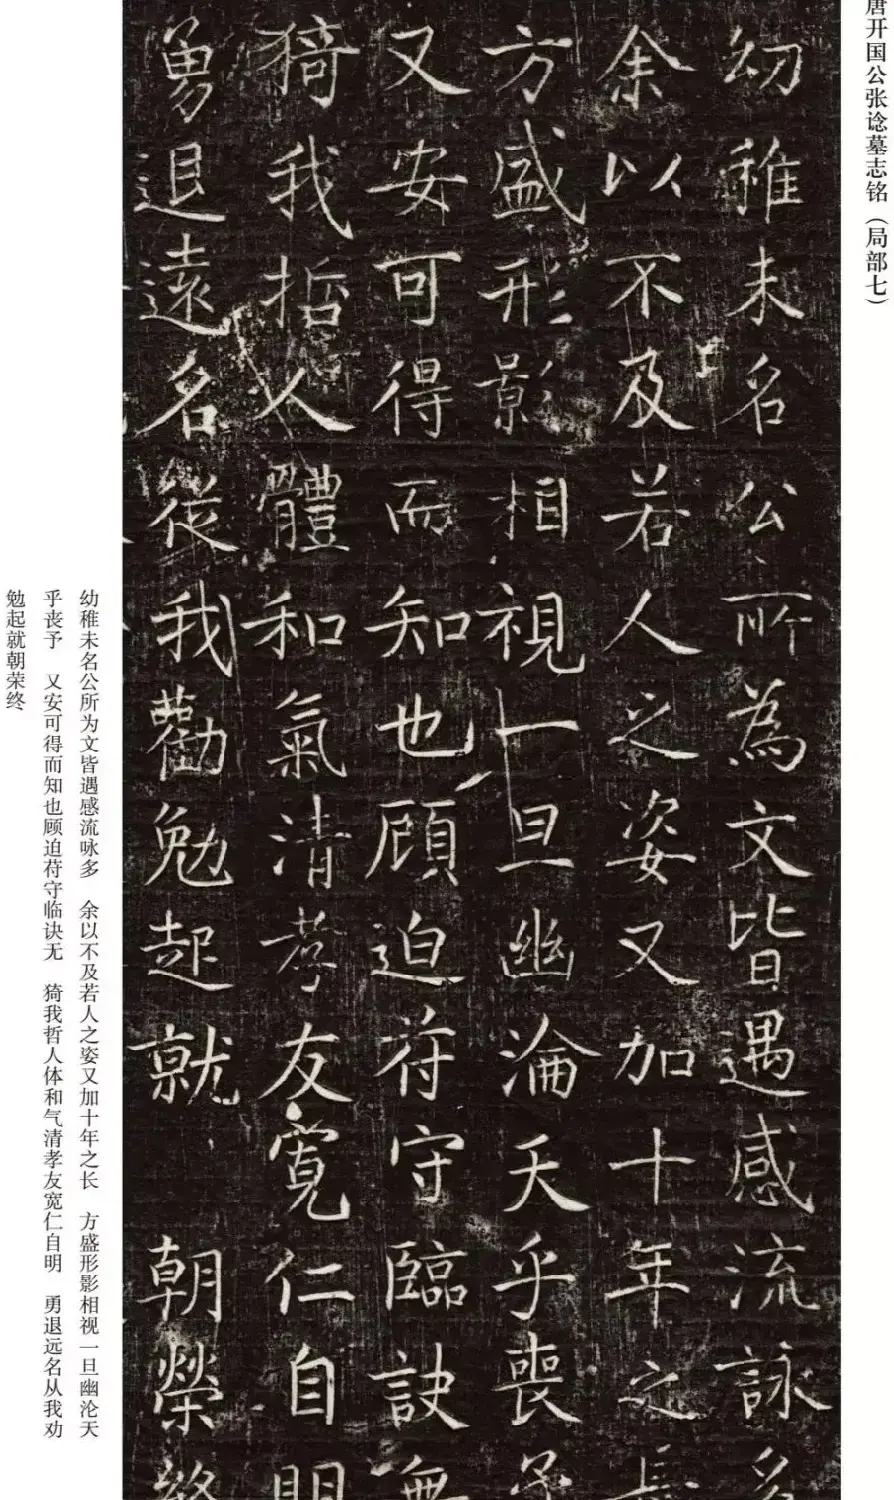 唐开国公张谂墓志铭（局部七）
幼稚未名公所為文皆遇感流詠多
余以不及若人之姿又加十年之長
方盛形影相視一旦幽淪天乎喪予
又安可得而知也顧迫苻守臨訣無
猗我哲人體和氣清孝友寬仁自明
勇退遠名從我勸勉起就朝榮終
幼稚未名公所为文皆遇感流咏多　余以不及若人之姿又加十年之长　方盛形影相视一旦幽沦天
乎丧予　又安可得而知也顾迫苻守临诀无　猗我哲人体和气清孝友宽仁自明　勇退远名从我劝
勉起就朝荣终